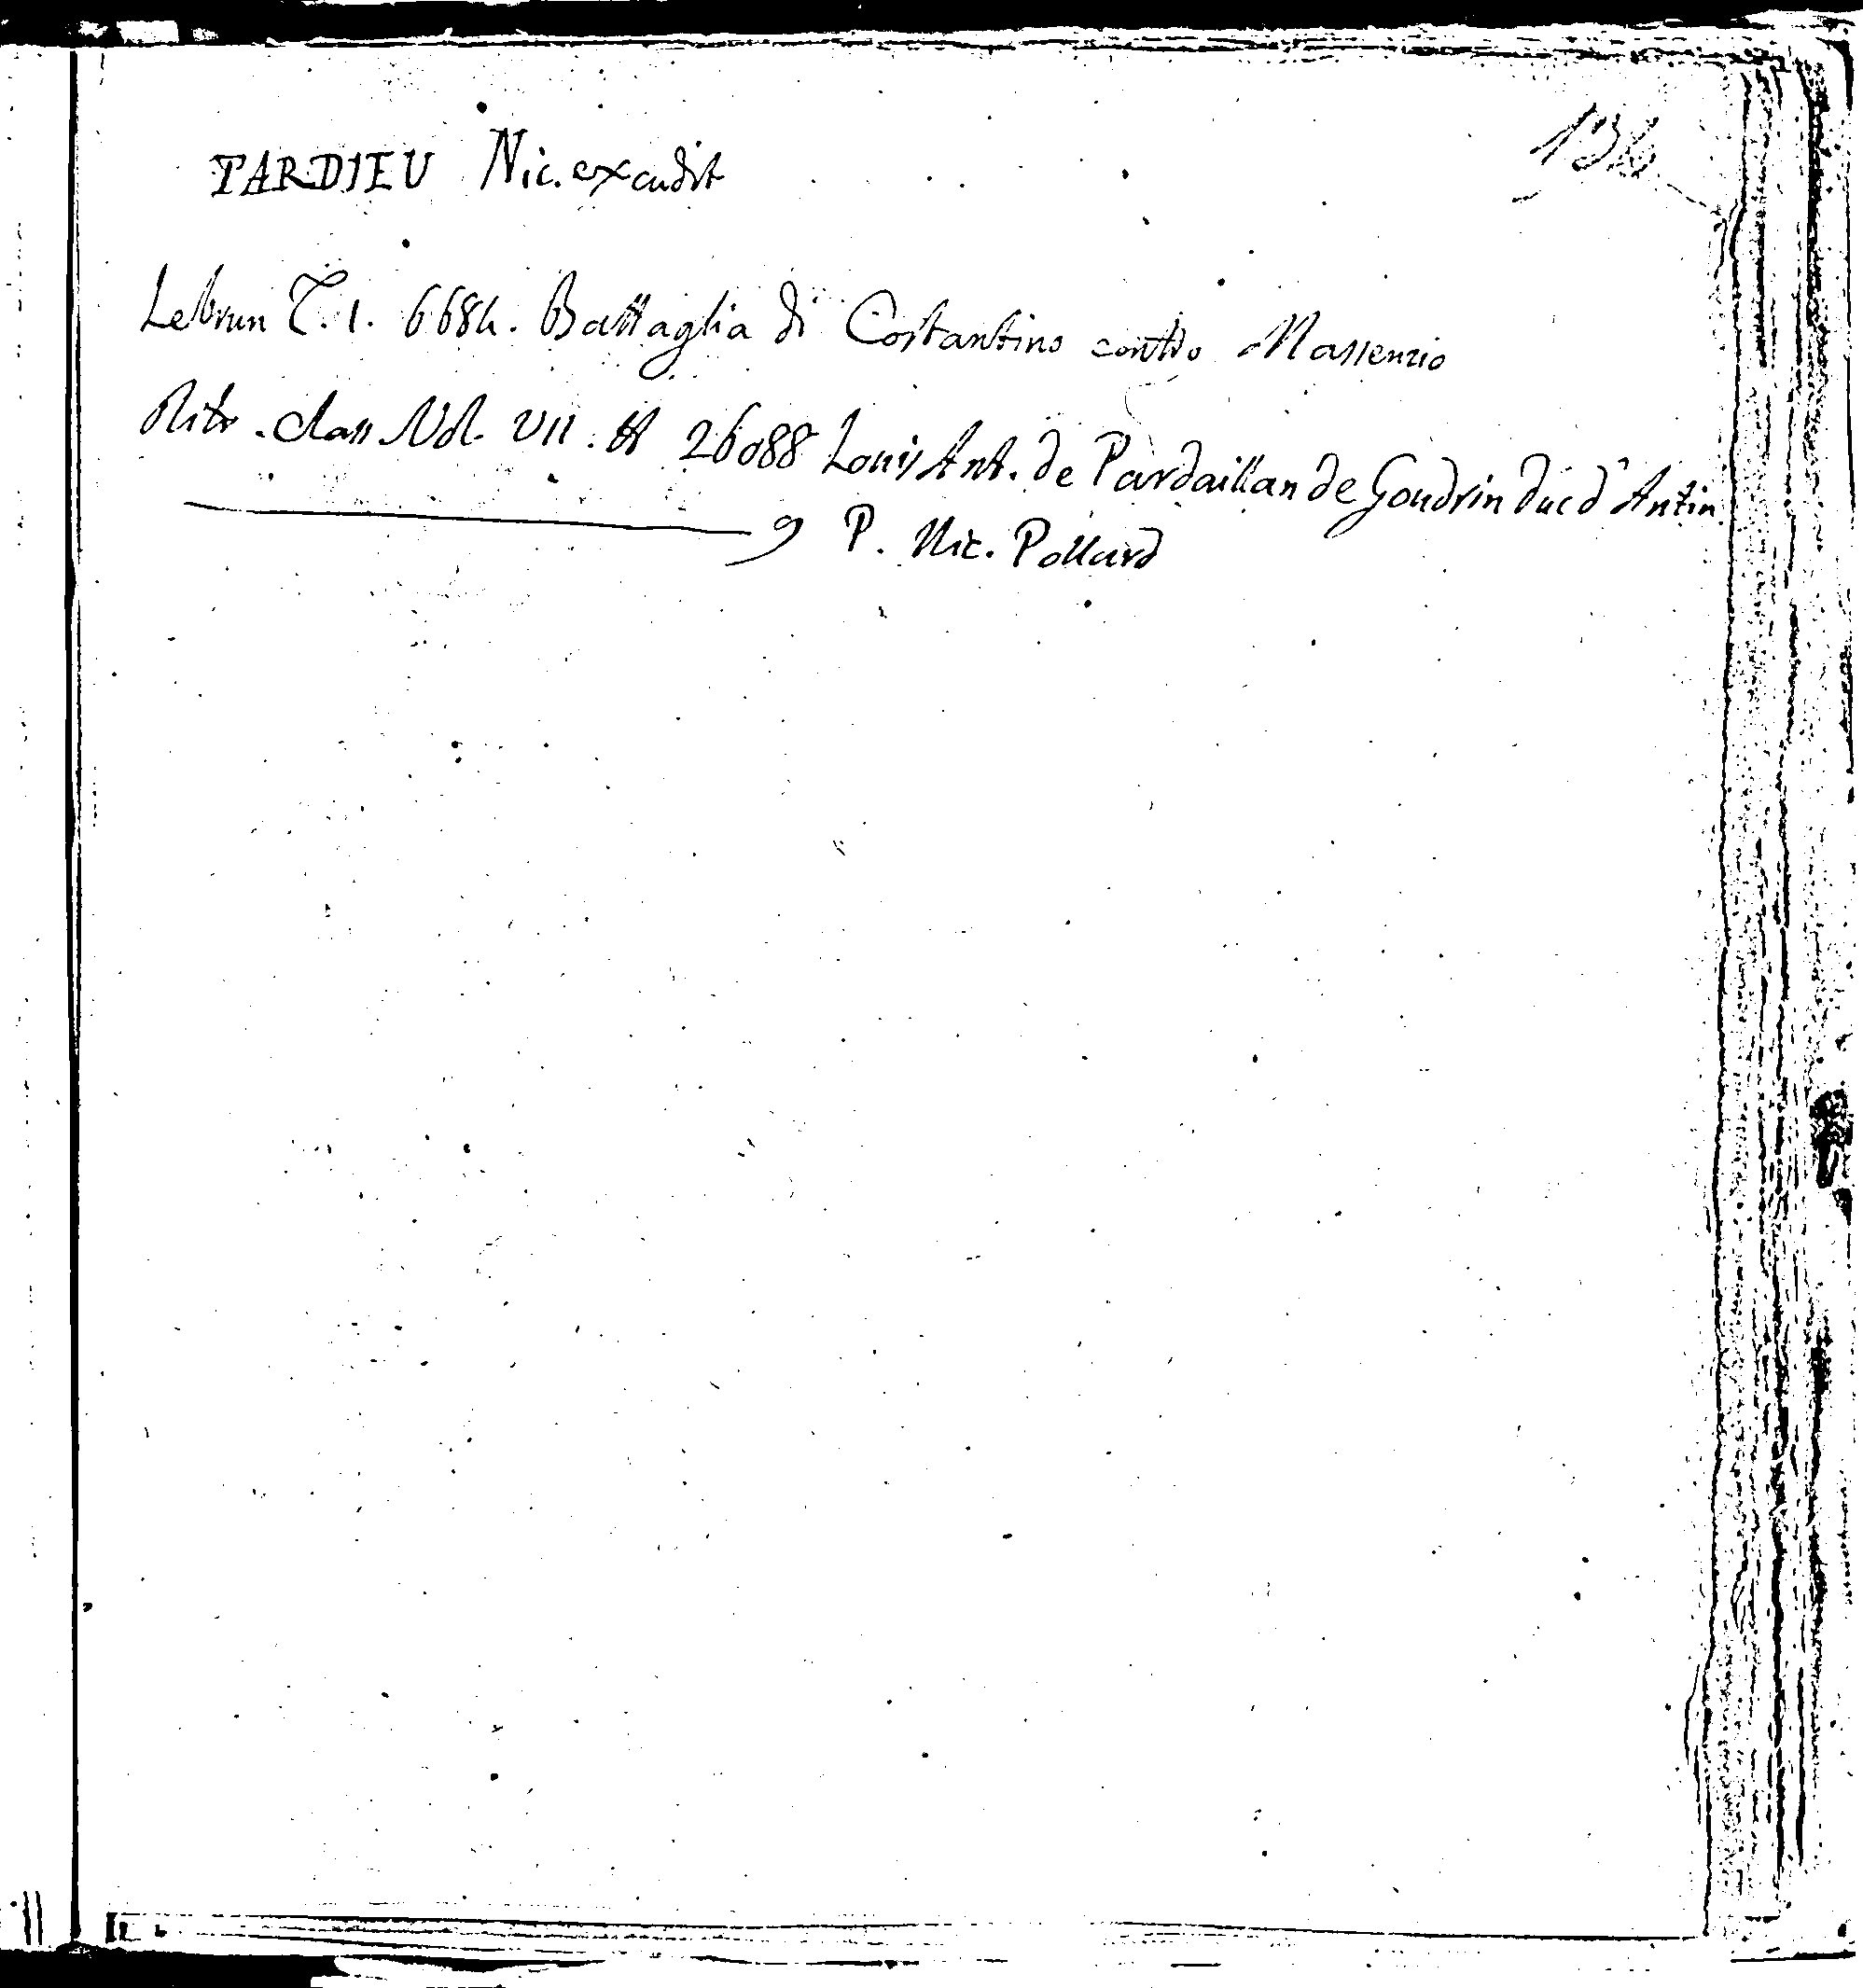 136
TARDIEU Nic. excudit
Lebrun T. 1. 6684. Battaglia di Costantino contro Massenzio
Ritr. Class Vol. VII. 26088 Louis Ant. de Pardaillan de Gondrin duc d'Antin
9 P. Nic. Pollard